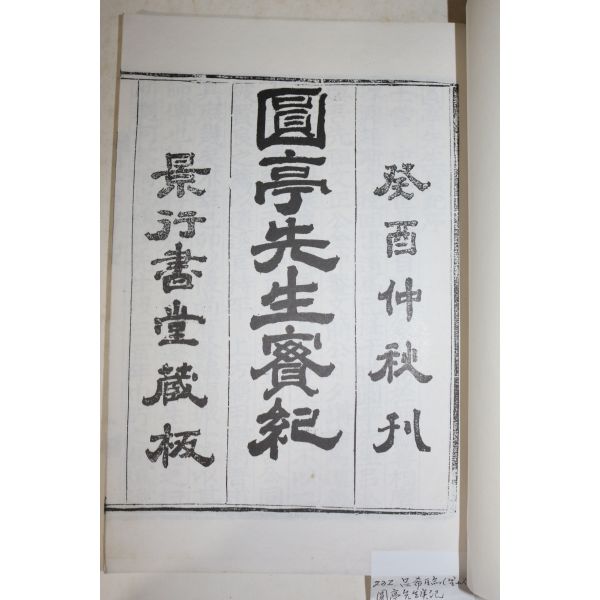 癸酉仲秋刊
圓亭先生實紀
景行書堂藏板
232 呂希臨
圓亭先生實紀